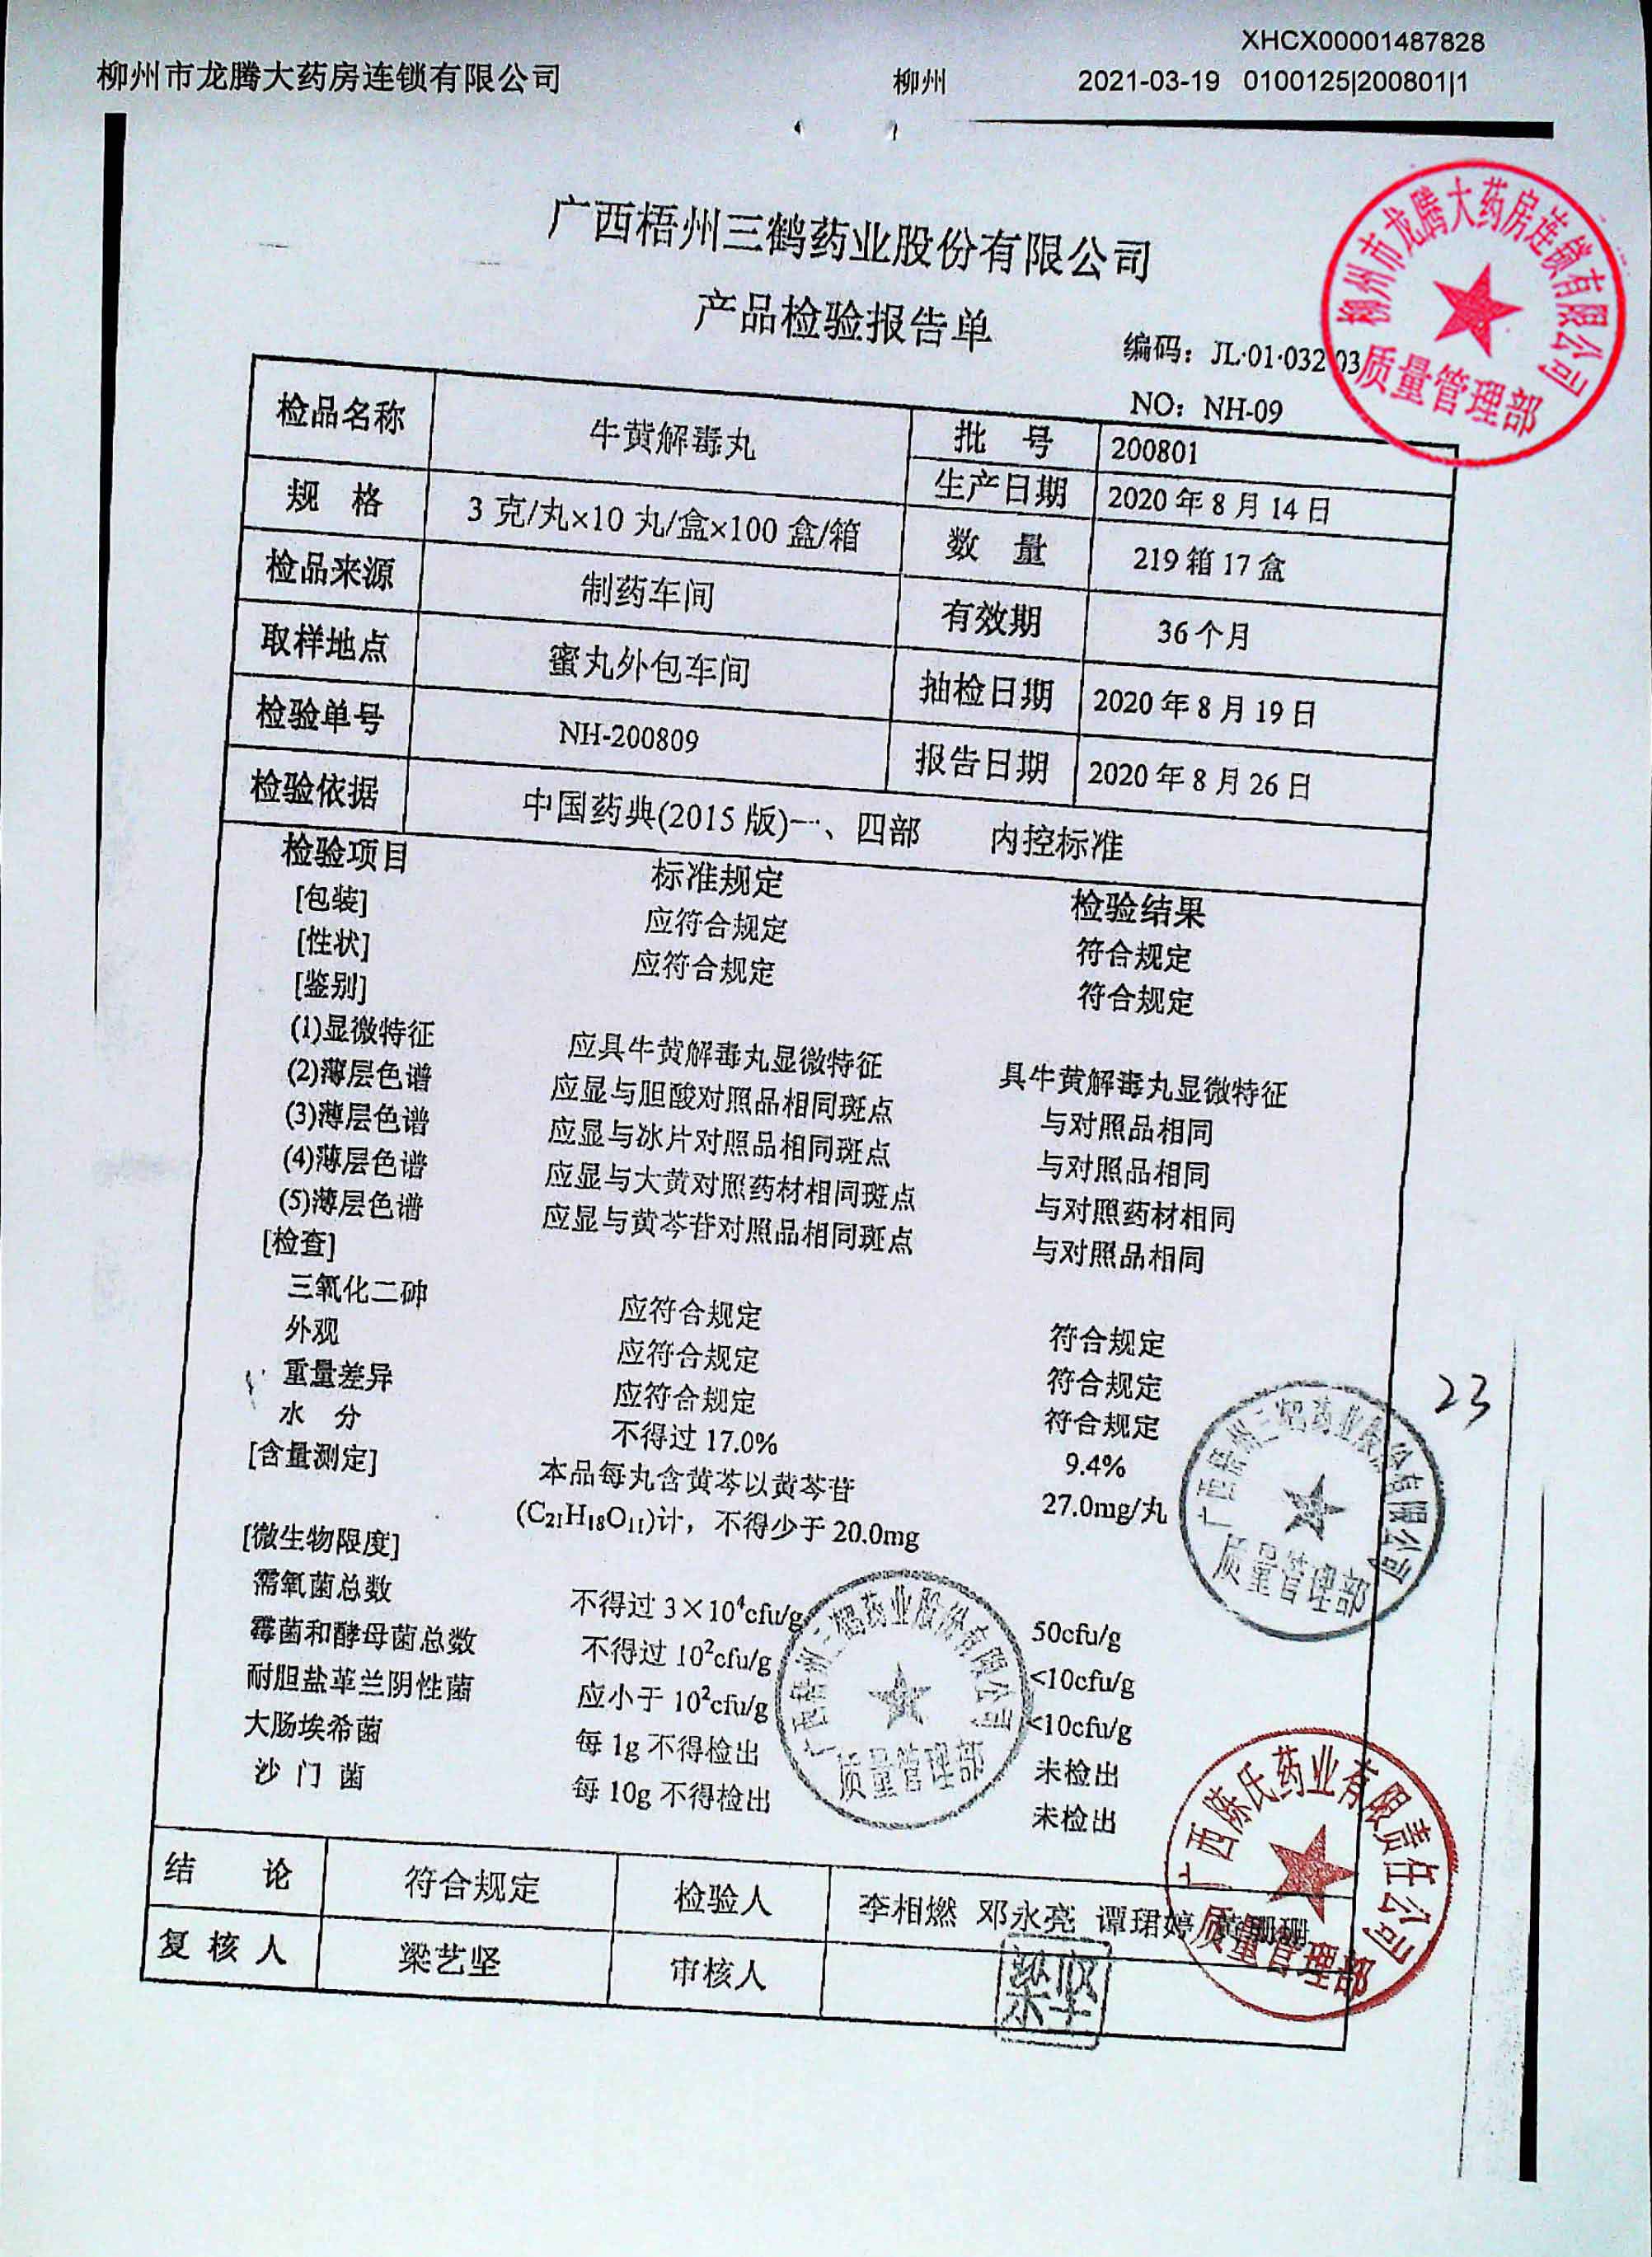 XHCX00001487828
柳州市龙腾大药房连锁有限公司 柳州 2021-03-19 0100125|200801|1
广西梧州三鹤药业股份有限公司
产品检验报告单
编码：JL·01·032 03
NO：NH-09
柳州市龙腾大药房连锁有限公司
质量管理部
检品名称 牛黄解毒丸 批 号 200801
生产日期 2020年8月14日
规 格 3克/丸×10丸/盒×100盒/箱 数 量 219箱17盒
检品来源 制药车间 有效期 36个月
取样地点 蜜丸外包车间 抽检日期 2020年8月19日
检验单号 NH-200809 报告日期 2020年8月26日
检验依据 中国药典(2015版)一、四部 内控标准
检验项目 标准规定 检验结果
[包装] 应符合规定 符合规定
[性状] 应符合规定 符合规定
[鉴别]
(1)显微特征 应具牛黄解毒丸显微特征 具牛黄解毒丸显微特征
(2)薄层色谱 应显与胆酸对照品相同斑点 与对照品相同
(3)薄层色谱 应显与冰片对照品相同斑点 与对照品相同
(4)薄层色谱 应显与大黄对照药材相同斑点 与对照药材相同
(5)薄层色谱 应显与黄芩苷对照品相同斑点 与对照品相同
[检查]
三氧化二砷 应符合规定 符合规定
外观 应符合规定 符合规定
重量差异 应符合规定 符合规定
水 分 不得过17.0% 9.4%
[含量测定] 本品每丸含黄芩以黄芩苷 27.0mg/丸
(C₂₁H₁₈O₁₁)计，不得少于20.0mg
23
广西梧州三鹤药业股份有限公司
质量管理部
[微生物限度]
需氧菌总数 不得过3×10⁴cfu/g 50cfu/g
霉菌和酵母菌总数 不得过10²cfu/g <10cfu/g
耐胆盐革兰阴性菌 应小于10²cfu/g <10cfu/g
大肠埃希菌 每1g不得检出 未检出
沙门菌 每10g不得检出 未检出
广西梧州三鹤药业股份有限公司
质量管理部
广西陈氏药业有限责任公司
质量管理部
结 论 符合规定 检验人 李相燃 邓永亮 谭珺婷 黄珊珊
复核人 梁艺坚 审核人 梁坚